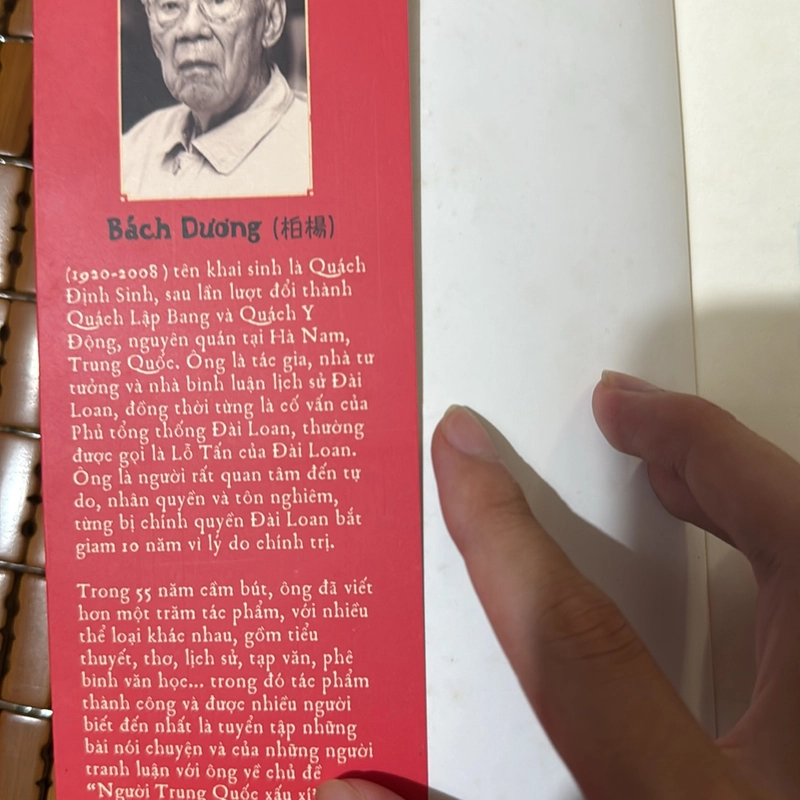 Bách Dương (柏楊)
(1920-2008) tên khai sinh là Quách
Định Sinh, sau lần lượt đổi thành
Quách Lập Bang và Quách Y
Động, nguyên quán tại Hà Nam,
Trung Quốc. Ông là tác gia, nhà tư
tưởng và nhà bình luận lịch sử Đài
Loan, đồng thời từng là cố vấn của
Phủ tổng thống Đài Loan, thường
được gọi là Lỗ Tấn của Đài Loan.
Ông là người rất quan tâm đến tự
do, nhân quyền và tôn nghiêm,
từng bị chính quyền Đài Loan bắt
giam 10 năm vì lý do chính trị.
Trong 55 năm cầm bút, ông đã viết
hơn một trăm tác phẩm, với nhiều
thể loại khác nhau, gồm tiểu
thuyết, thơ, lịch sử, tạp văn, phê
bình văn học... trong đó tác phẩm
thành công và được nhiều người
biết đến nhất là tuyển tập những
bài nói chuyện và của những người
tranh luận với ông về chủ đề
“Người Trung Quốc xấu xí”